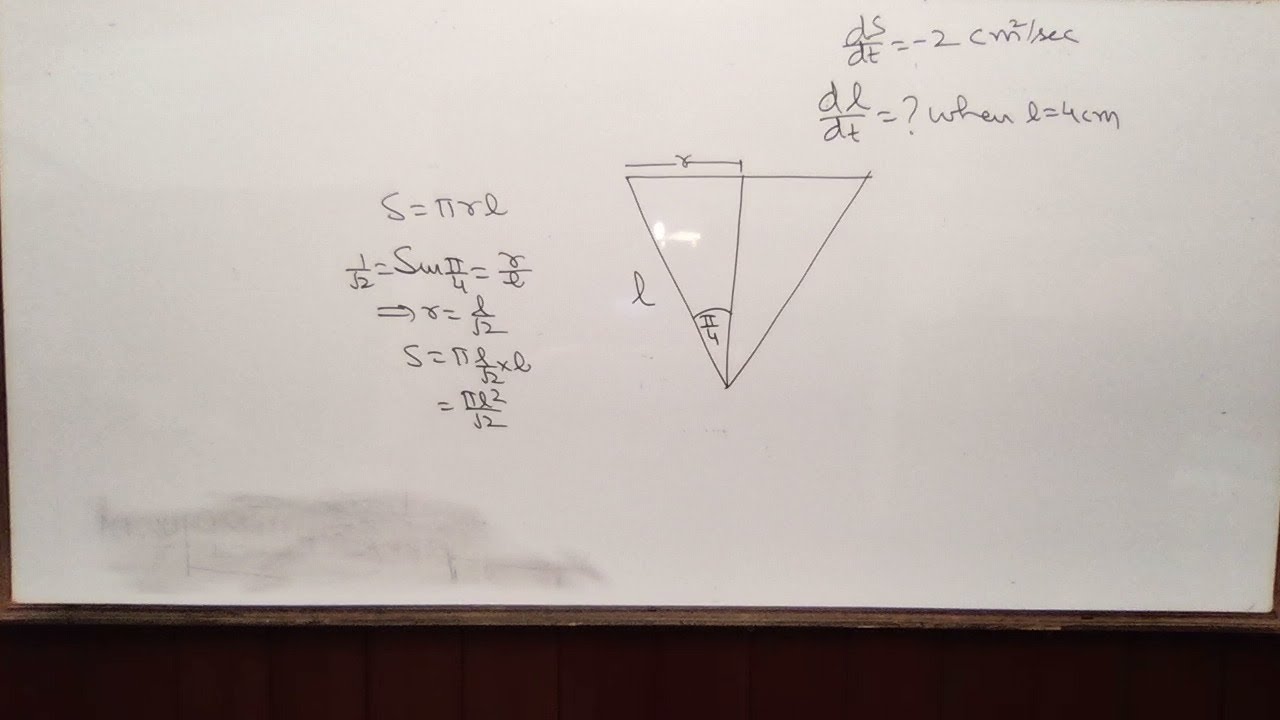 dS/dt = -2 cm²/sec
dl/dt = ? when l = 4 cm
r
S = πrl
1/√2 = Sin π/4 = r/l
⇒ r = l/√2
S = π l/√2 × l
= πl²/√2
l
π/4